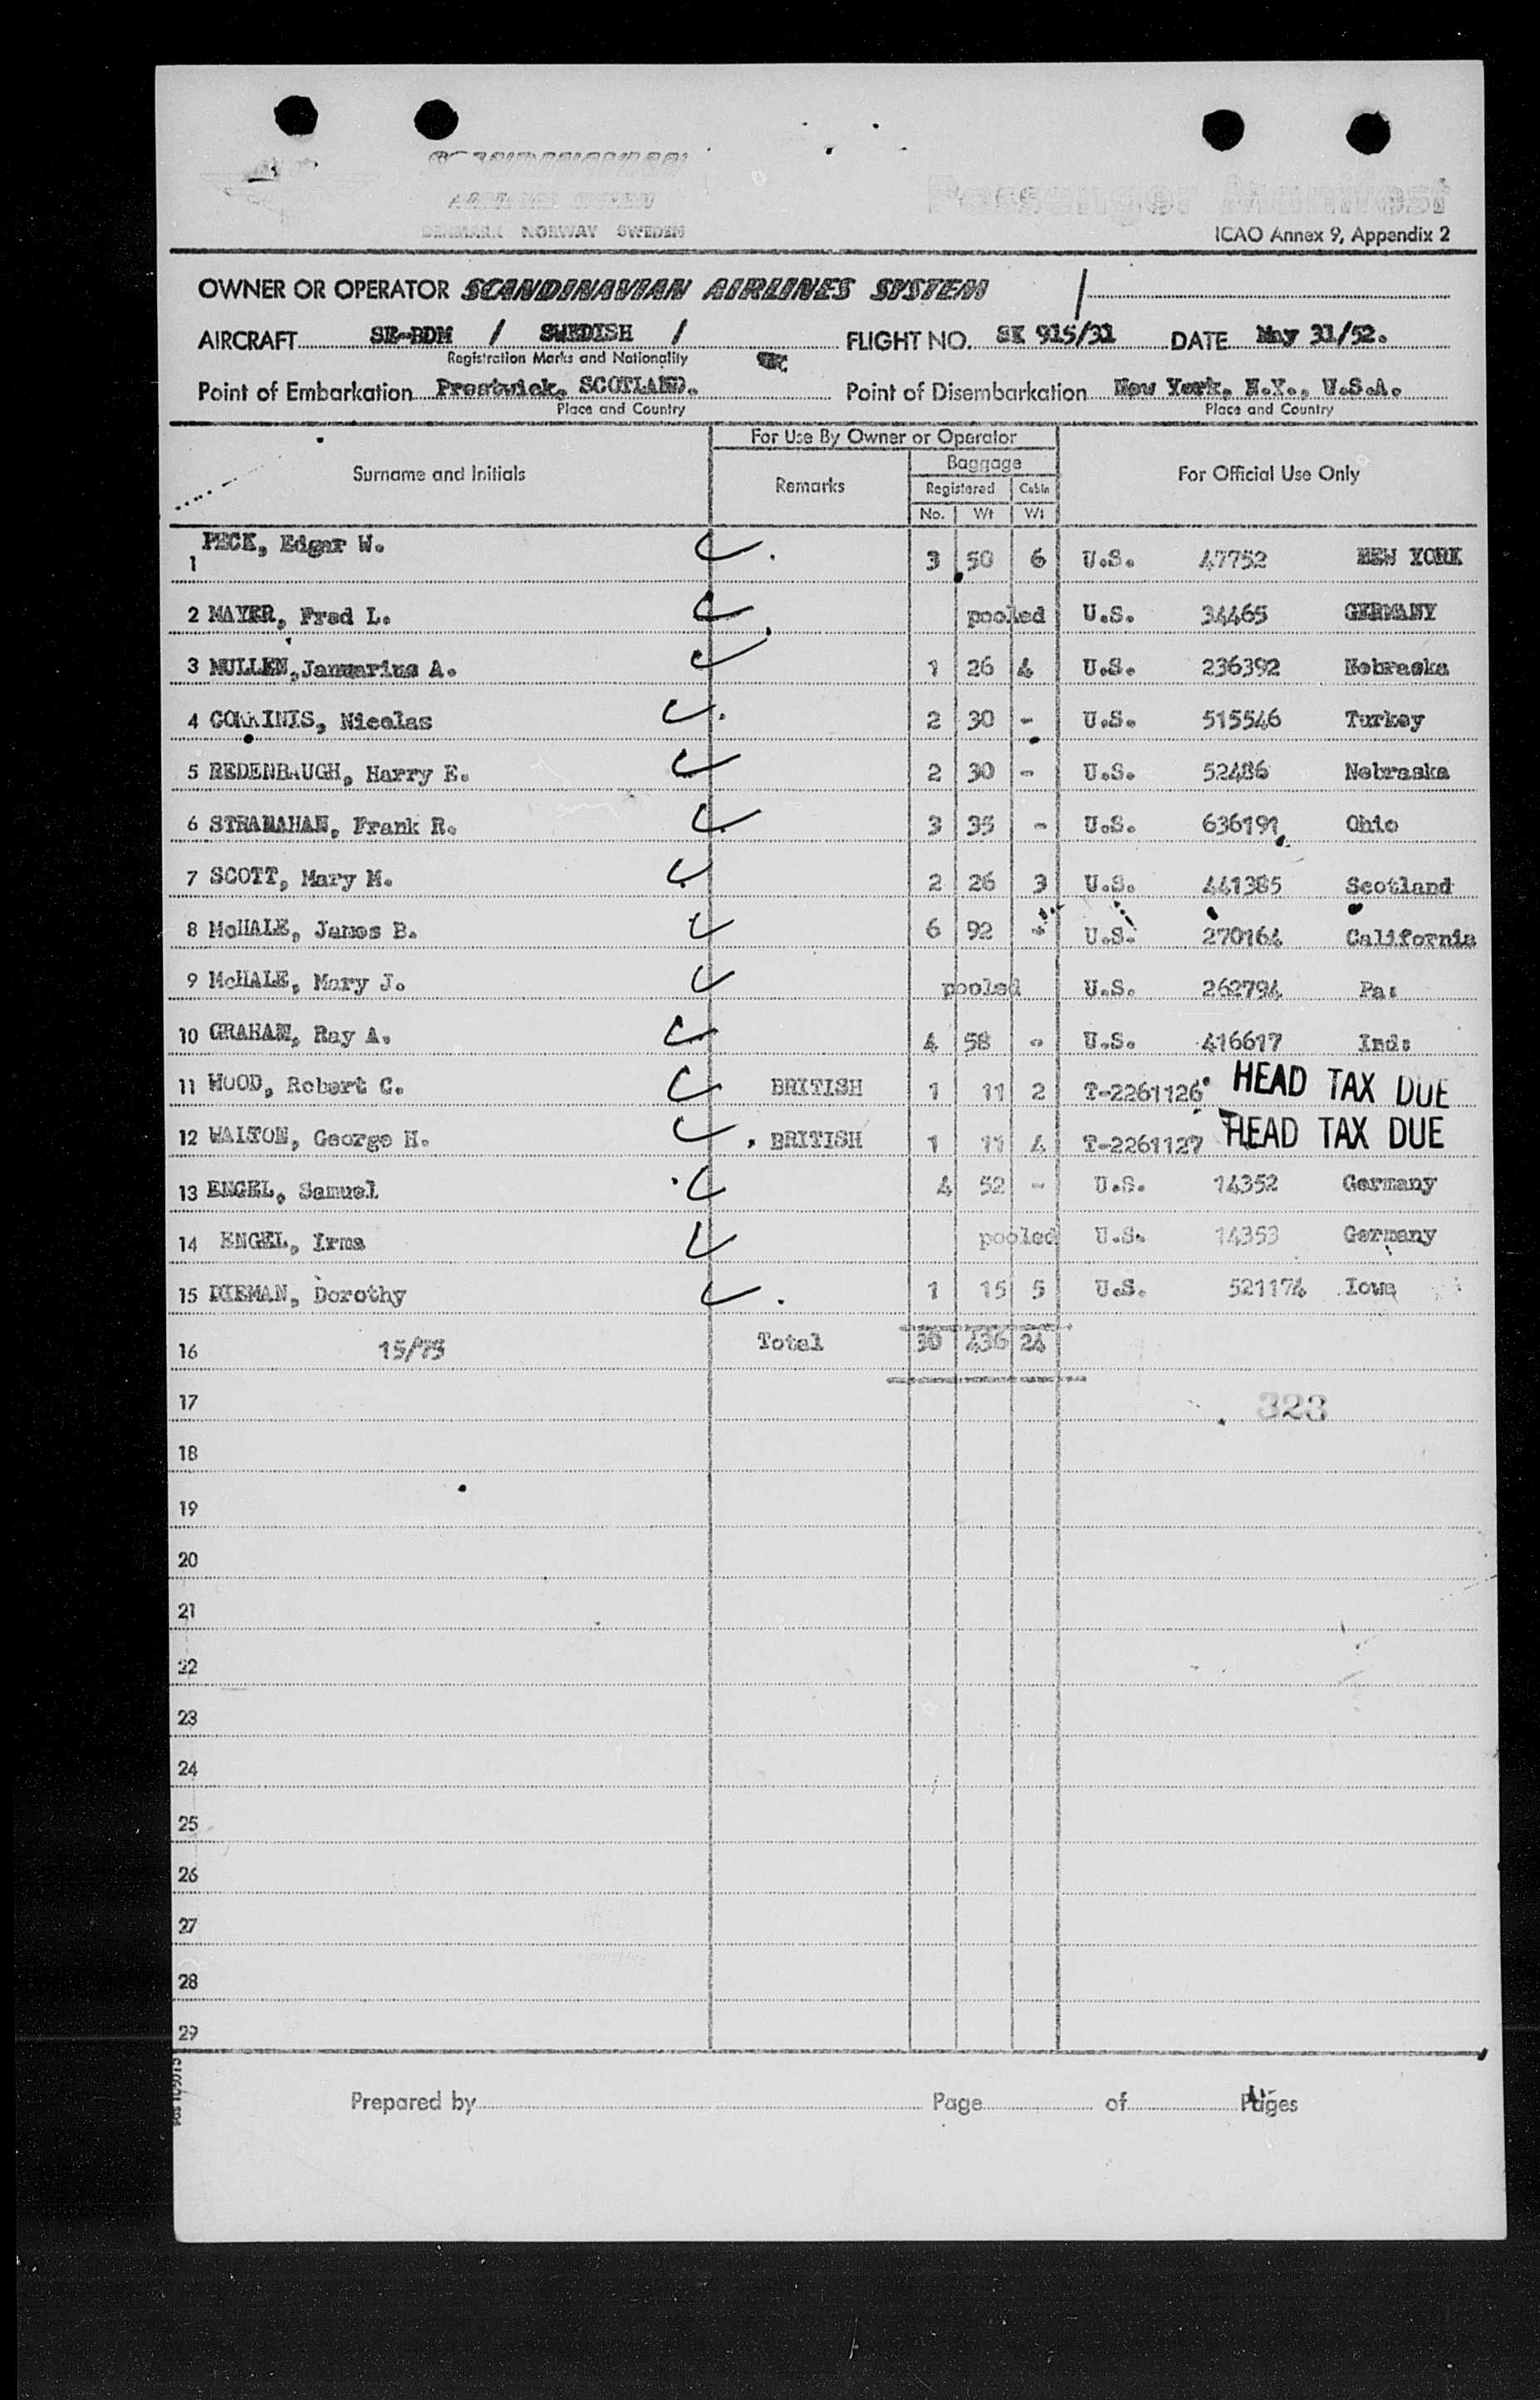 SCANDINAVIAN
AIRLINES SYSTEM
DENMARK NORWAY SWEDEN
Passenger Manifest
ICAO Annex 9, Appendix 2
OWNER OR OPERATOR SCANDINAVIAN AIRLINES SYSTEM /
AIRCRAFT SE-BDM / SWEDISH / FLIGHT NO. SK 915/31 DATE May 31/52.
Registration Marks and Nationality
Point of Embarkation Prestwick, SCOTLAND. Point of Disembarkation New York, N.Y., U.S.A.
Place and Country Place and Country
For Use By Owner or Operator
Surname and Initials Remarks Baggage For Official Use Only
Registered Cabin
No. Wt Wt
1 PECK, Edgar W. 3 50 6 U.S. 47752 NEW YORK
2 MAYER, Fred L. pooled U.S. 34465 GERMANY
3 MULLEN, Januarius A. 1 26 4 U.S. 236392 Nebraska
4 Nicolas 2 30 - U.S. 515546 Turkey
5 REDENBAUGH, Harry E. 2 30 - U.S. 52486 Nebraska
6 STRANAHAN, Frank R. 3 35 - U.S. 636191 Ohio
7 SCOTT, Mary M. 2 26 3 U.S. 441385 Scotland
8 McHALE, James B. 6 92 - U.S. 270164 California
9 McHALE, Mary J. pooled U.S. 262794 Pa:
10 GRAHAM, Ray A. 4 58 - U.S. 416617 Ind:
11 WOOD, Robert C. BRITISH 1 11 2 T-2261126 HEAD TAX DUE
12 WALTON, George H. BRITISH 1 11 4 T-2261127 HEAD TAX DUE
13 ENGEL, Samuel 4 52 - U.S. 14352 Germany
14 ENGEL, Irma pooled U.S. 14353 Germany
15 Dorothy 1 15 5 U.S. 521174 Iowa
16 15/75 Total 30 436 24
17 323
18
19
20
21
22
23
24
25
26
27
28
29
Prepared by Page of Pages